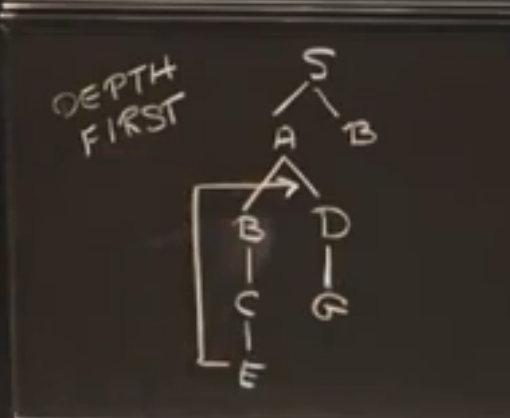 DEPTH
FIRST
S
A B
B D
C G
E